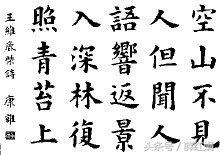 空山不見
人但聞人
語響返景
入深林復
照青苔上
王維鹿柴詩 康